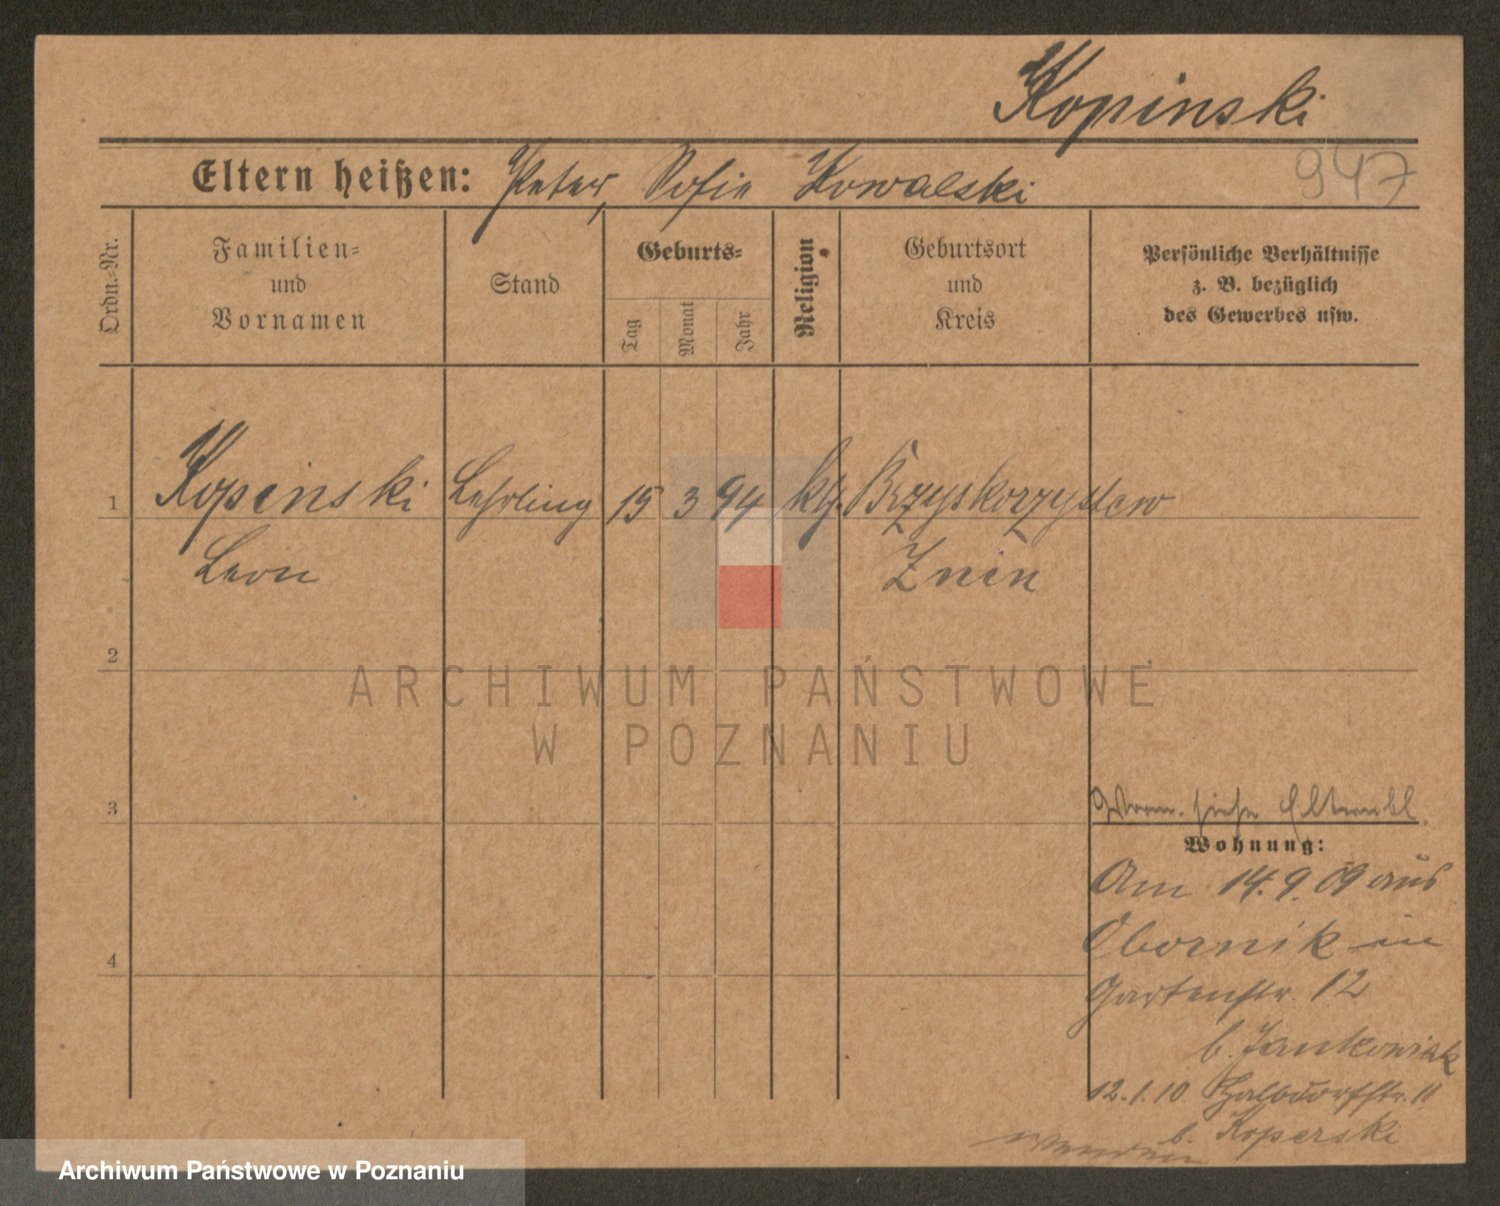 Kopinski
947
Eltern heißen: Peter, Sofie Kowalski
Ordn.-Nr.
Familien-
und
Vornamen
Stand
Geburts-
Tag
Monat
Jahr
Religion
Geburtsort
und
Kreis
Persönliche Verhältnisse
z. B. bezüglich
des Gewerbes usw.
1 Kopinski Lehrling 15 3 94 kth. Brzyskorzystew
Leon Znin
2
3
4
ARCHIWUM PAŃSTWOWE
W POZNANIU
siehe
Wohnung:
Am 14.9.09 aus
Obornik in
Gartenstr. 12
b. Jankowiak
12.1.10 Halbdorfstr. 11
b. Koperski
wenden
Archiwum Państwowe w Poznaniu